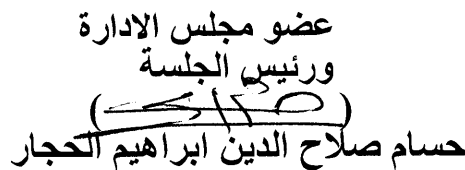 عضو مجلس الادارة
ورئيس الجلسة
حسام صلاح الدين ابراهيم الحجار